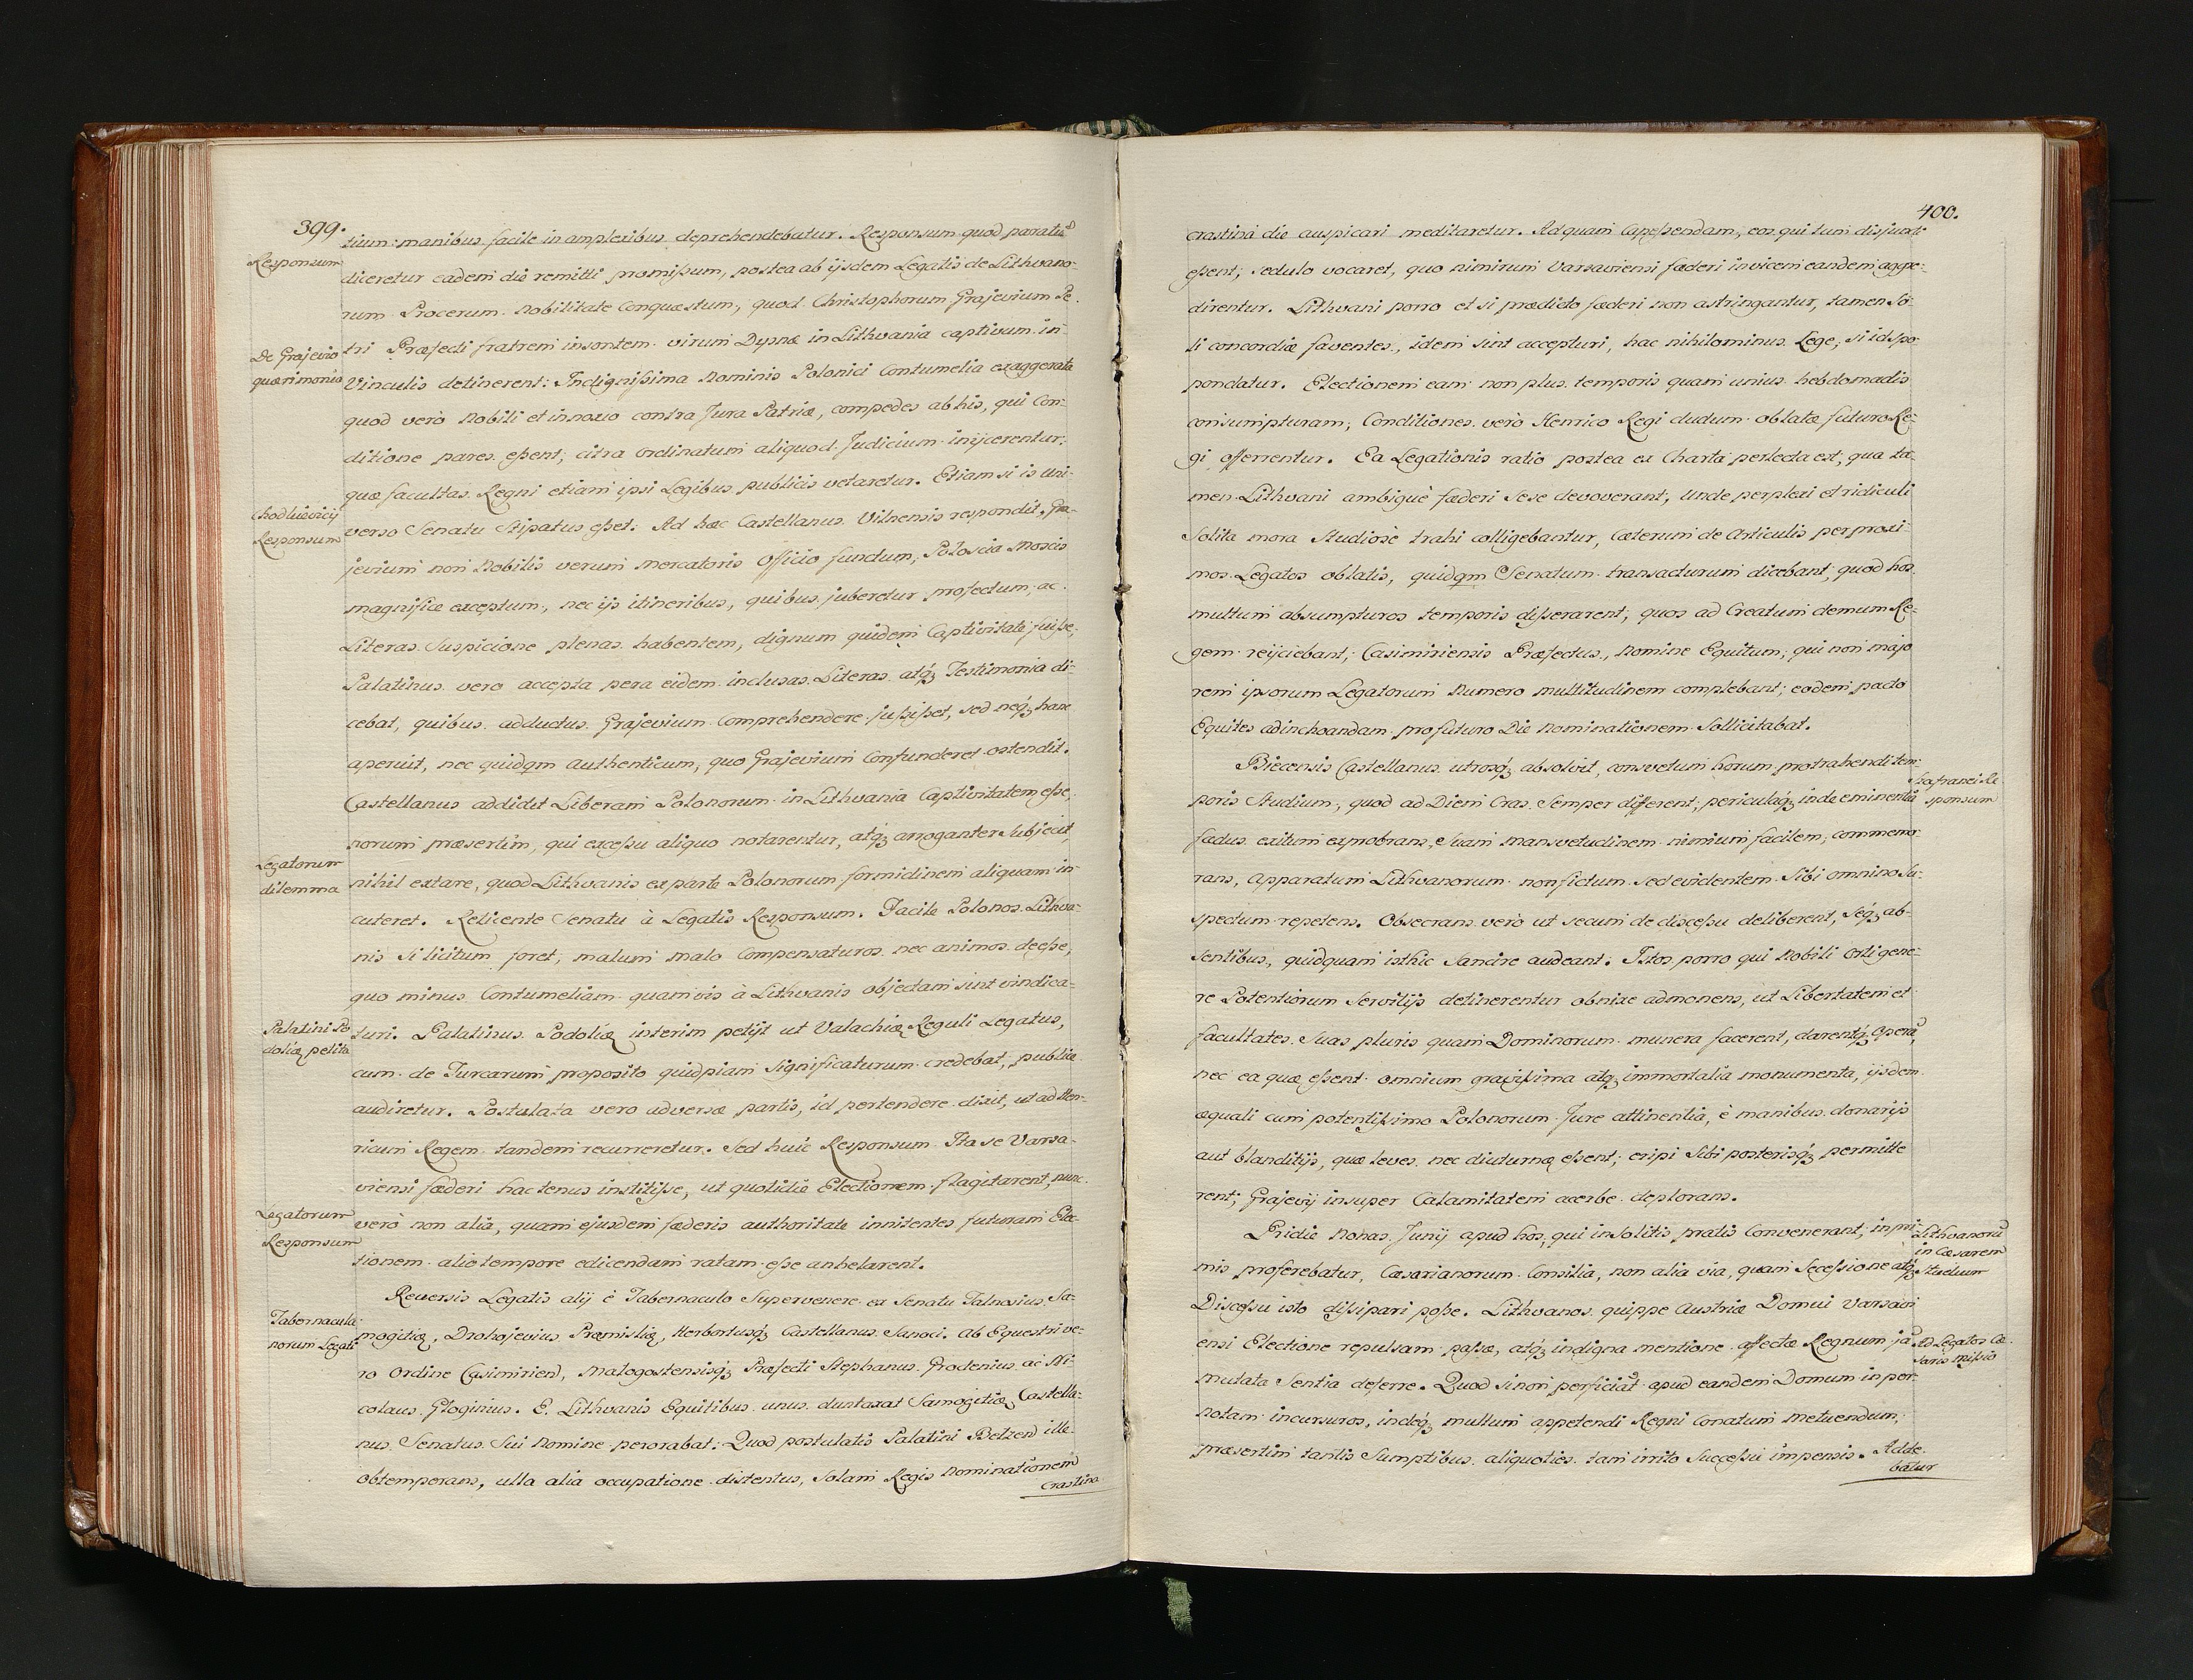 399.
tium: manibus facile in amplexibus deprehendebatur. Responsum quod paratũ
Responsum
diceretur eadem die remitti promißum, postea ab ijsdem Legatis de Lithvano-
rum Procerum Nobilitate Conquæstum, quod Christophorum Grajevium Pe-
De Grajevio
quærimonia
tri Præfecti fratrem insontem virum Dysnæ in Lithvania captivum in
Vinculis detinerent: Indignißima Nominis Polonici Contumelia exaggerata
quod verò Nobili et innoxio contra Jura Patriæ, compedes ab his, qui Con-
ditione pares eßent; citra Ordinatum aliquod Judicium inijcerentur:
quæ facultas Regni etiam ipsi Legibus publicis vetaretur. Etiam si is uni-
Chodkievicij
Responsum
verso Senatu Stipatus eßet: Ad hæc Castellanus Vilnensis respondit, Gra-
jevium non Nobilis verum Mercatoris Officio functum; Poloscia Moscis
magnificæ exceptum, nec ijs itineribus, quibus juberetur profectum, ac
Literas Suspicione plenas habentem, dignum quidem Captivitate fuiße;
Palatinus vero accepta pera eidem inclusas Literas atq́ʒ Testimonia di-
cebat, quibus adductus Grajevium Comprehendere jußißet, sed neq́ʒ hanc
aperuit, nec quidqm Authenticum, quo Grajevium Confunderet ostendit.
Castellanus addidit Liberam Polonorum in Lithvania Captivitatem eße,
norum præsertim, qui exceßu aliquo notarentur, atq́ʒ arroganter Subjecit,
Legatorum
dilemma
nihil extare, quod Lithvanis ex parte Polonorum formidinem aliquam in-
cuteret. Reticente Senatu à Legatis Responsum. Facile Polonos Lithva-
nis Si licitum foret, malum malo Compensaturos nec animos deeße,
quo minus Contumeliam quamvis à Lithvanis objectam sint vindica-
Palatini Po
doliæ petita
turi. Palatinus Podoliæ interim petijt ut Valachiæ Reguli Legatus,
cum de Turcarum proposito quidpiam Significaturum credebat, publice
audiretur. Postulata vero adversæ partis, id pertendere dixit, ut ad Hen-
ricum Regem tandem recurreretur. Sed huic Responsum Ita se Varsa-
viensi fæderi hactenus institiße, ut quotidie Electionem flagitarent, nunc
Legatorum
Responsum
verò non alia, quam ejusdem fæderis authoritate innitentes futuram Elec-
tionem alio tempore edicendam ratam eße anhelarent.
Reversis Legatis alij è Tabernaculo Supervenere ex Senatu Talvosius Sa-
Tabernacula
norum Legati
mogitiæ, Drohojevius Præmisliæ, Herbortusq́ʒ Castellanus Sanoci. Ab Equestri ve-
ro Ordine Casimirien, Malogostensisq́ʒ Præfecti Stephanus Grodenius ac Ni-
colaus Gloginius. E. Lithvanis Equitibus unus duntaxat Samogitiæ Castella-
nus. Senatus Sui Nomine perorabat: Quod postulatis Palatini Belzen ille
obtemperans, ulla alia occupatione distentus, Solam Regis Nominationem
Crastina
400.
crastinà die auspicari meditaretur. Ad quam Capeßendam, eos qui tum disjuncti
eßent; sedulo vocaret, quo nimirum Varsaviensi fæderi invicem eandem aggre-
direntur. Lithvani porro et si prædicto fæderi non astringantur, tamen So-
li concordiæ faventes, idem sint accepturi, hac nihilominus Lege; si id spo-
pondatur. Electionem eam non plus temporis quam unius hebdomadis
consumpturam; Conditiones verò Henrico Regi dudum oblatæ futuro Re-
gi offerrentur. Ea Legationis ratio postea ex Charta perlecta est, qua ta-
men Lithvani ambiguè fæderi Sese devoverant, unde perplexi et ridiculi
Solita mora Studiosè trahi colligebantur, Cæterum de Articulis per proxi-
mos Legatos oblatis, quidqm Senatum transacturum dicebant, quod hos
multum absumpturos temporis dißerarent; quos ad Creatum demum Re-
gem reijciebant, Casimiriensis Præfectus, Nomine Equitum, qui non majo
rem ipsorum Legatorum Numero multitudinem complebant; eodem pacto
Equites ad inchoandam pro futuro Die Nominationem Sollicitabat.
Biecensis Castellanus utrosq́ʒ absolvit, consvetum horum protrahendi tem-
Szafranci Re
sponsum
poris Studium, quod ad Diem Cras Semper different, periculaq́ʒ inde eminentia
fædus exitum exprobrans, Suam mansvetudinem nimium facilem, commemo-
rans, Apparatum Lithvanorum non fictum sed evidentem Sibi omnino Su-
spectum repetens. Obsecrans verò ut secum de disceßu deliberent, Seq́ʒ ab-
sentibus, quidquam isthic Sancire audeant: Istos porro qui Nobili Orti gene-
re Potentiorum Servitijs detinerentur obnixe admonens, ut Libertatem et
facultates Suas pluris quam Dominorum munera facerent, darentq́ʒ Operã,
nec ea quæ eßent omnium gravißima atq́ʒ immortalia monumenta, ijsdem
æquali cum potentißimo Polonorum Jure attinentia, è manibus donarijs
aut blanditijs, quæ leves nec diuturnæ eßent; eripi Sibi posterisq́ʒ permitte
rent; Grajevij insuper Calamitatem acerbe deplorans.
Pridie Nonas Junij apud hos, qui in Solitis pratis Convenerant; in pri-
Lithvanorũ
in Cæsarem
Studium
mis proferebatur, Cæsarianorum Consilia, non alia via, quam Seceßione atq́ʒ
Disceßu isto dißipari poße. Lithvanos quippe Austriæ Domui Varsavi
ensi Electione repulsam paßæ, atq́ʒ indigna mentione affectæ Regnum jã
Ad Legatos Cæ-
saris mißio
mutata Sentia deferre. Quod si non perficiãt apud eandem Domum in per-
notam incursuros, indeq́ʒ multum appetendi Regni Conatum metuendum,
præsertim tantis Sumptibus aliquoties tam irrito Succeßu impensis. Adde-
batur